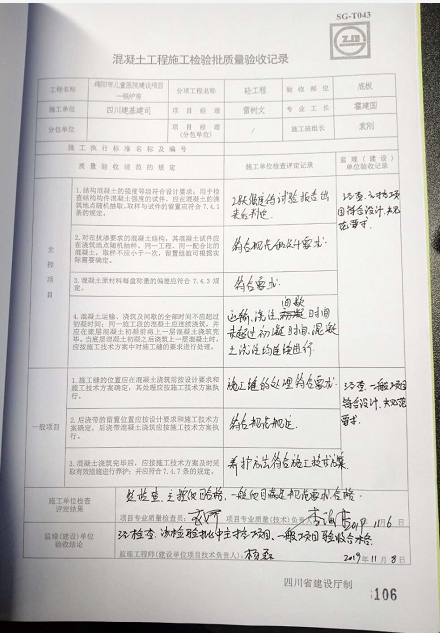 SG-T043
混凝土工程施工检验批质量验收记录
工程名称 绵阳市儿童医院建设项目一锅炉房 分项工程名称 砼工程 验收部位 底板
施工单位 四川建基建司 项目经理 雷树文 专业工长 霍建国
分包单位 / 项目经理(分包单位) / 施工班组长 袁刚
施工执行标准名称及编号
质量验收规范的规定 施工单位检查评定记录 监理(建设)单位验收记录
主控项目
1.结构混凝土的强度等级符合设计要求,用于检查结构构件混凝土强度的试件,应在混凝土的浇筑地点随机抽取,取样与试件的留置应符合7.4.1条的规定。
试验报告出来后判定。
2.对有抗渗要求的混凝土结构,其混凝土试件应在浇筑地点随机抽样,同一工程、同一配合比的混凝土,取样不应小于一次,留置组数可根据实际需要确定。
符合规范的设计要求
3.混凝土原材料每盘称量的偏差应符合7.4.3规定。
符合要求
4.混凝土运输、浇筑及间歇的全部时间不应超过初凝时间,同一施工段的混凝土应连续浇筑,并应在底层混凝土初凝前将上一层混凝土浇筑完毕。当底层混凝土初凝之后浇筑上一层混凝土时,应按施工技术方案中对施工缝的要求进行处理。
间歇
运输、浇注、时间
未超过初凝时间,混凝
土浇筑均连续进行.
一般项目
1.施工缝的位置应在混凝土浇筑前按设计要求和施工技术方案确定,其处理应按施工技术方案执行。
施工缝的处理符合要求
2.后浇带的留置位置应按设计要求和施工技术方案确定,后浇带混凝土浇筑应按施工技术方案执行。
符合规范规定.
3.混凝土浇筑完毕后,应按施工技术方案及时采取有效措施进行养护,并应符合7.4.7条的规定。
养护方法符合施工技术方案
施工单位检查评定结果
经检查,主控项目合格,一般项目满足规范要求,合格.
项目专业质量检查员: 项目专业质量(技术)负责人: 2019年11月6日
监理(建设)单位验收结论
经检查,该检验批中主控项目、一般项目验收合格.
监理工程师(建设单位项目技术负责人): 2019年11月8日
四川省建设厅制
106